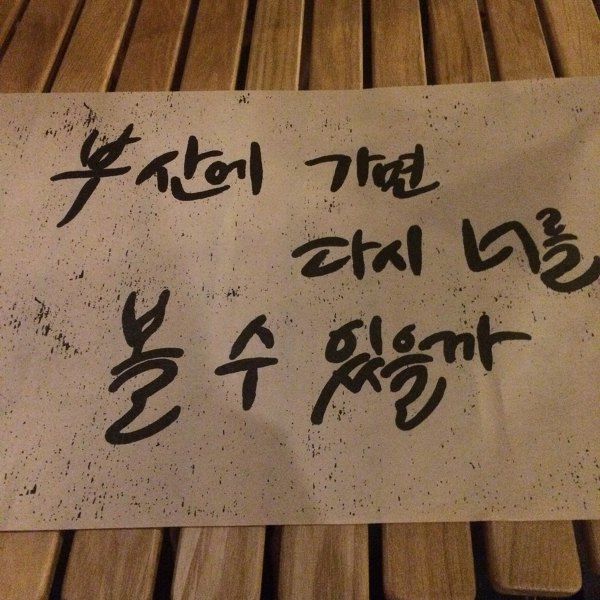 부산에 가면
다시 너를
볼 수 있을까